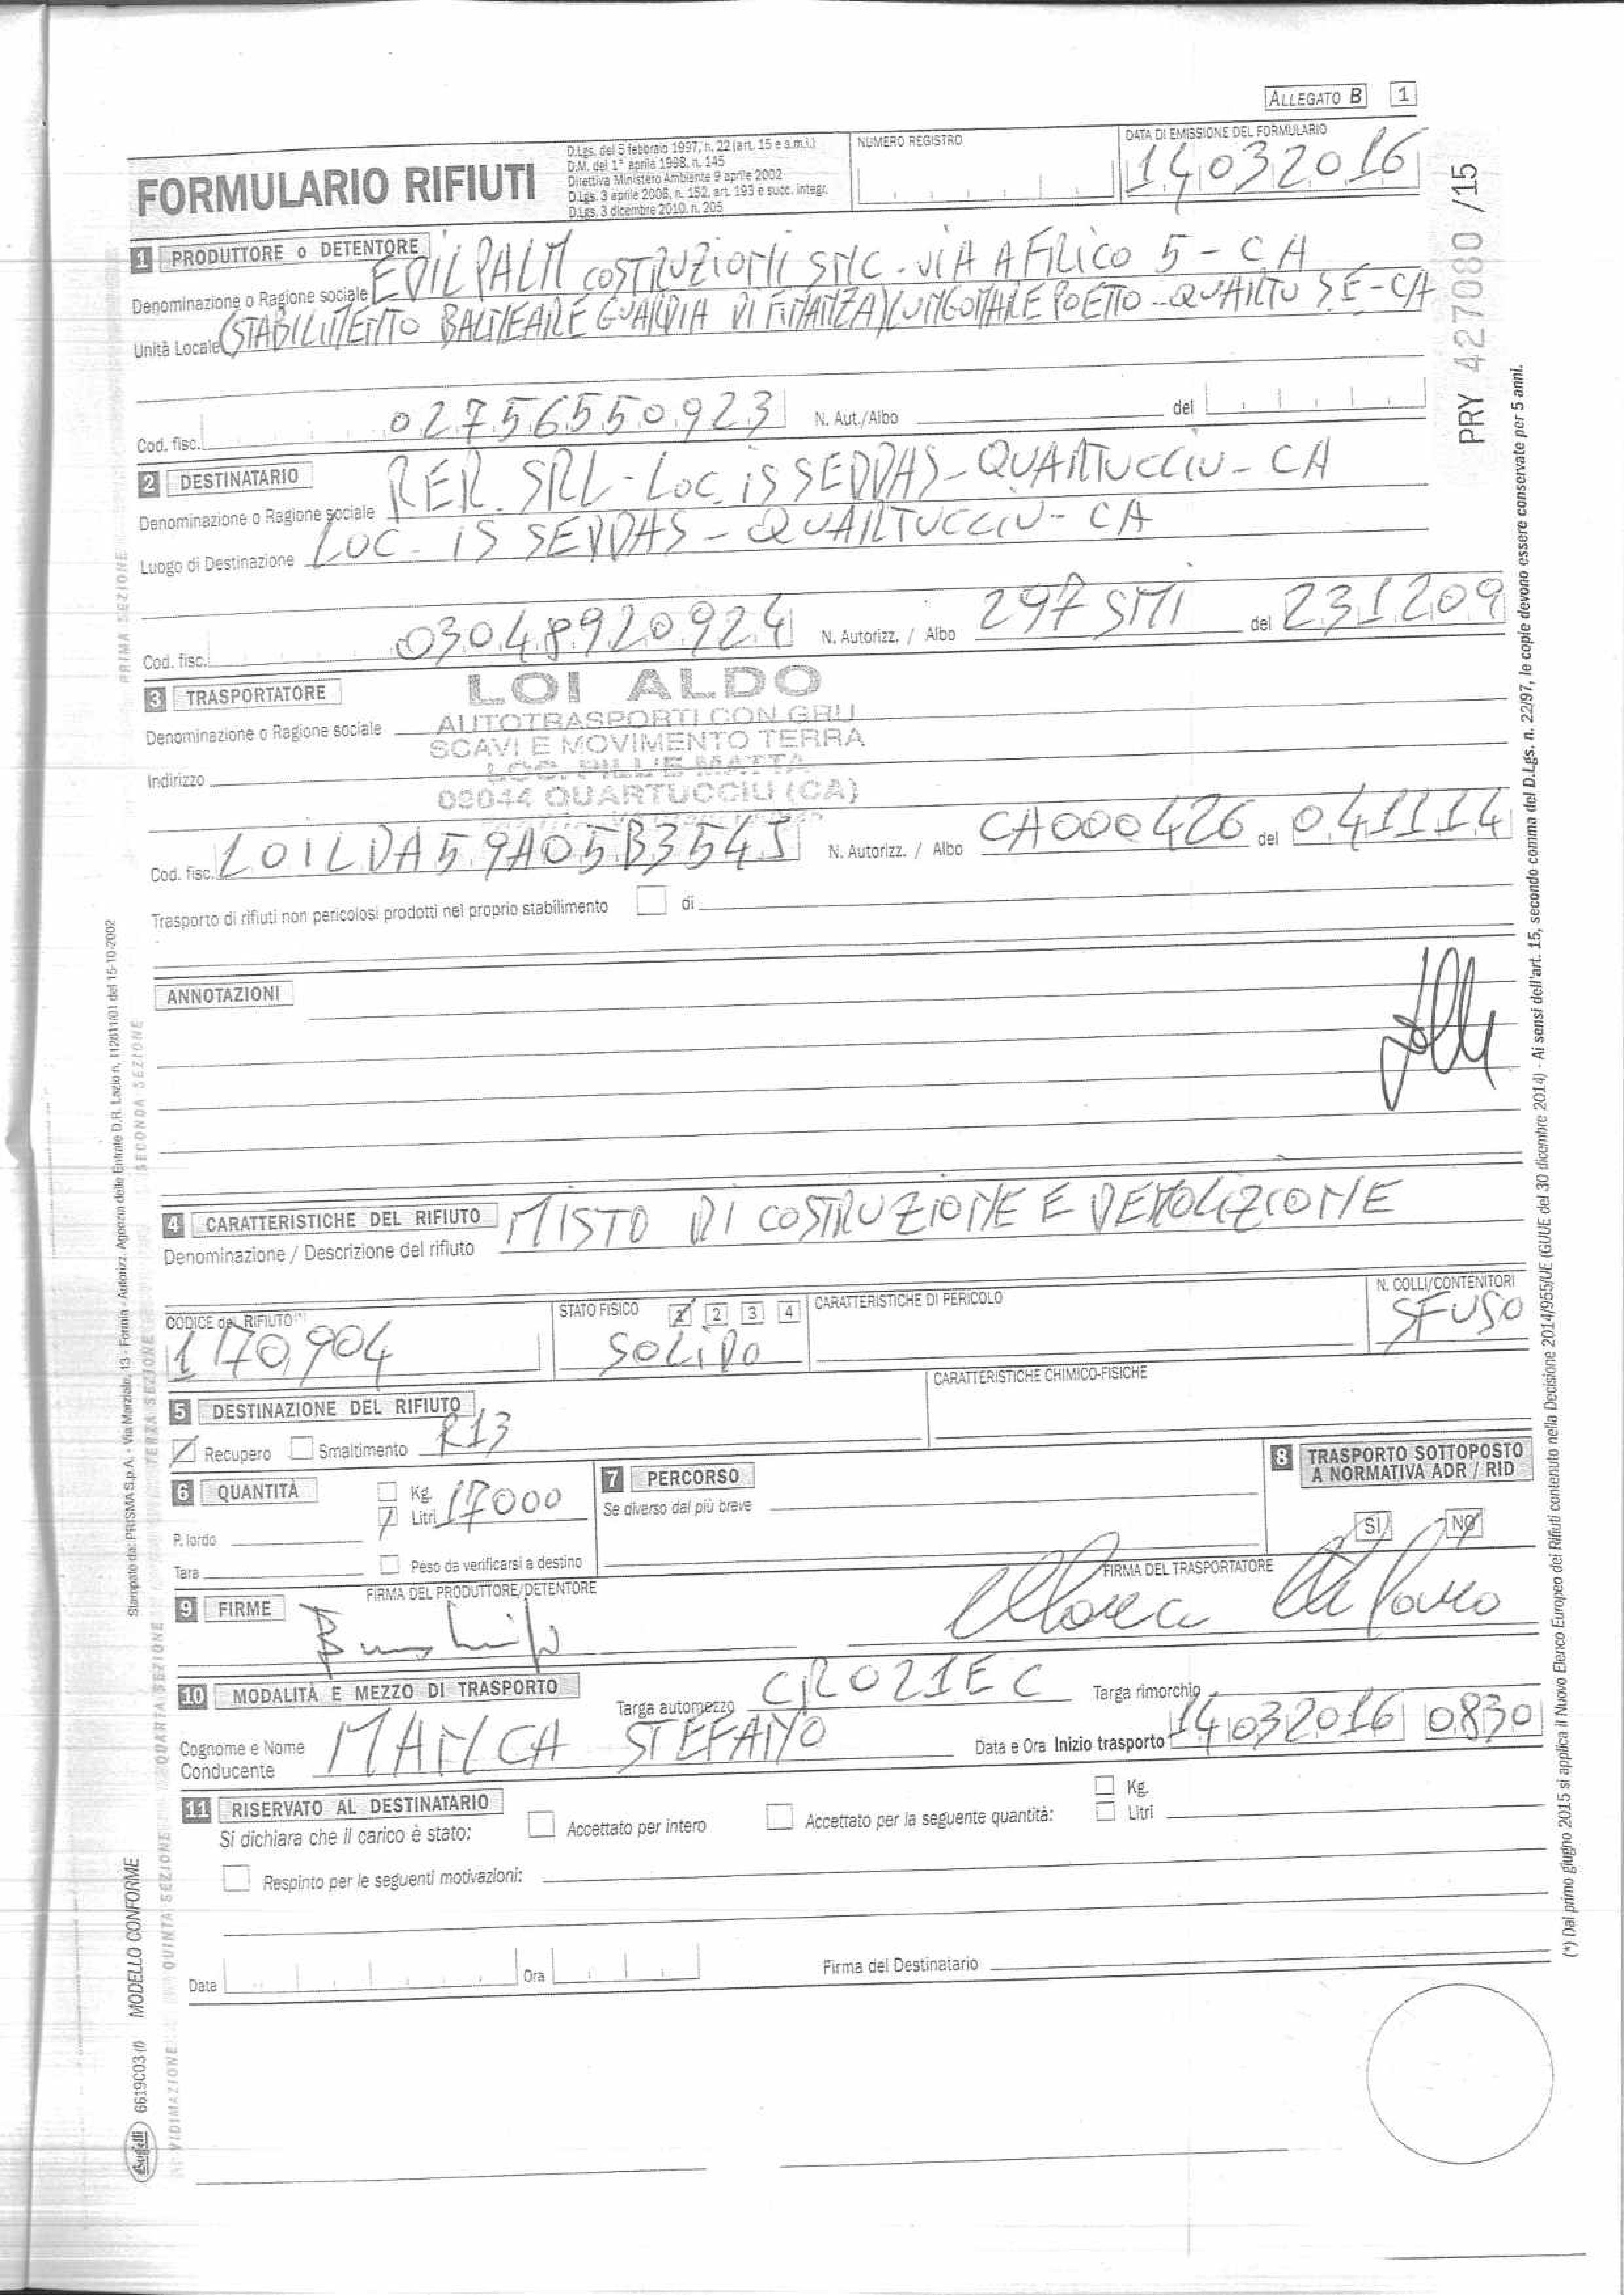 ALLEGATO B 1
FORMULARIO RIFIUTI
D.Lgs. del 5 febbraio 1997, n. 22 (art. 15 e s.m.i.)
D.M. del 1° aprile 1998, n. 145
Direttiva Ministero Ambiente 9 aprile 2002
D.Lgs. 3 aprile 2006, n. 152, art. 193 e succ. integr.
D.Lgs. 3 dicembre 2010, n. 205
NUMERO REGISTRO
DATA DI EMISSIONE DEL FORMULARIO
14032016
PRY 427080 /15
1 PRODUTTORE o DETENTORE
Denominazione o Ragione sociale EDILPALM COSTRUZIONI SNC - VIA AFRICO 5 - CA
Unità Locale (STABILIMENTO BALNEARE GUARDIA DI FINANZA) LUNGOMARE POETTO - QUARTU SE - CA
Cod. fisc. 02756550923 N. Aut./Albo del
2 DESTINATARIO
Denominazione o Ragione sociale RER. SRL - LOC. IS SERDAS - QUARTUCCIU - CA
Luogo di Destinazione LOC - IS SERDAS - QUARTUCCIU - CA
Cod. fisc. 03048920924 N. Autorizz. / Albo 297 SMI del 231209
3 TRASPORTATORE
LOI ALDO
Denominazione o Ragione sociale AUTOTRASPORTI CON GRU
SCAVI E MOVIMENTO TERRA
Indirizzo LOC. PILL'E MATTA
09044 QUARTUCCIU (CA)
Cod. fisc. LOILDA59A05B354J N. Autorizz. / Albo CA000426 del 041114
Trasporto di rifiuti non pericolosi prodotti nel proprio stabilimento di
ANNOTAZIONI
4 CARATTERISTICHE DEL RIFIUTO
Denominazione / Descrizione del rifiuto MISTO DI COSTRUZIONE E DEMOLIZIONE
CODICE del RIFIUTO(*) 170904
STATO FISICO 1 2 3 4
SOLIDO
CARATTERISTICHE DI PERICOLO
N. COLLI/CONTENITORI
SFUSO
CARATTERISTICHE CHIMICO-FISICHE
5 DESTINAZIONE DEL RIFIUTO
Recupero Smaltimento R13
6 QUANTITÀ
Kg.
Litri 17000
P. lordo
Tara
Peso da verificarsi a destino
7 PERCORSO
Se diverso dal più breve
8 TRASPORTO SOTTOPOSTO
A NORMATIVA ADR / RID
SI NO
9 FIRME
FIRMA DEL PRODUTTORE/DETENTORE
FIRMA DEL TRASPORTATORE
10 MODALITÀ E MEZZO DI TRASPORTO
Targa automezzo CR021EC Targa rimorchio
Cognome e Nome
Conducente MANCA STEFANO
Data e Ora Inizio trasporto 14032016 0830
11 RISERVATO AL DESTINATARIO
Si dichiara che il carico è stato:
Accettato per intero
Accettato per la seguente quantità:
Kg.
Litri
Respinto per le seguenti motivazioni:
Data Ora Firma del Destinatario
Buffetti 6619C03 (f) MODELLO CONFORME
Stampato da: PRISMA S.p.A. - Via Marziale, 13 - Formia - Autorizz. Agenzia delle Entrate D.R. Lazio n. 112811/01 del 15-10-2002
PRIMA SEZIONE
SECONDA SEZIONE
TERZA SEZIONE
QUARTA SEZIONE
QUINTA SEZIONE
VIDIMAZIONE
(*) Dal primo giugno 2015 si applica il Nuovo Elenco Europeo dei Rifiuti contenuto nella Decisione 2014/955/UE (GUUE del 30 dicembre 2014) - Ai sensi dell'art. 15, secondo comma del D.Lgs. n. 22/97, le copie devono essere conservate per 5 anni.